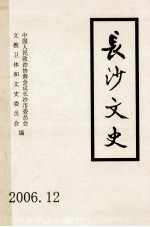 长沙文史
中国人民政治协商会议长沙市委员会
文教卫体和文史委员会 编
2006.12